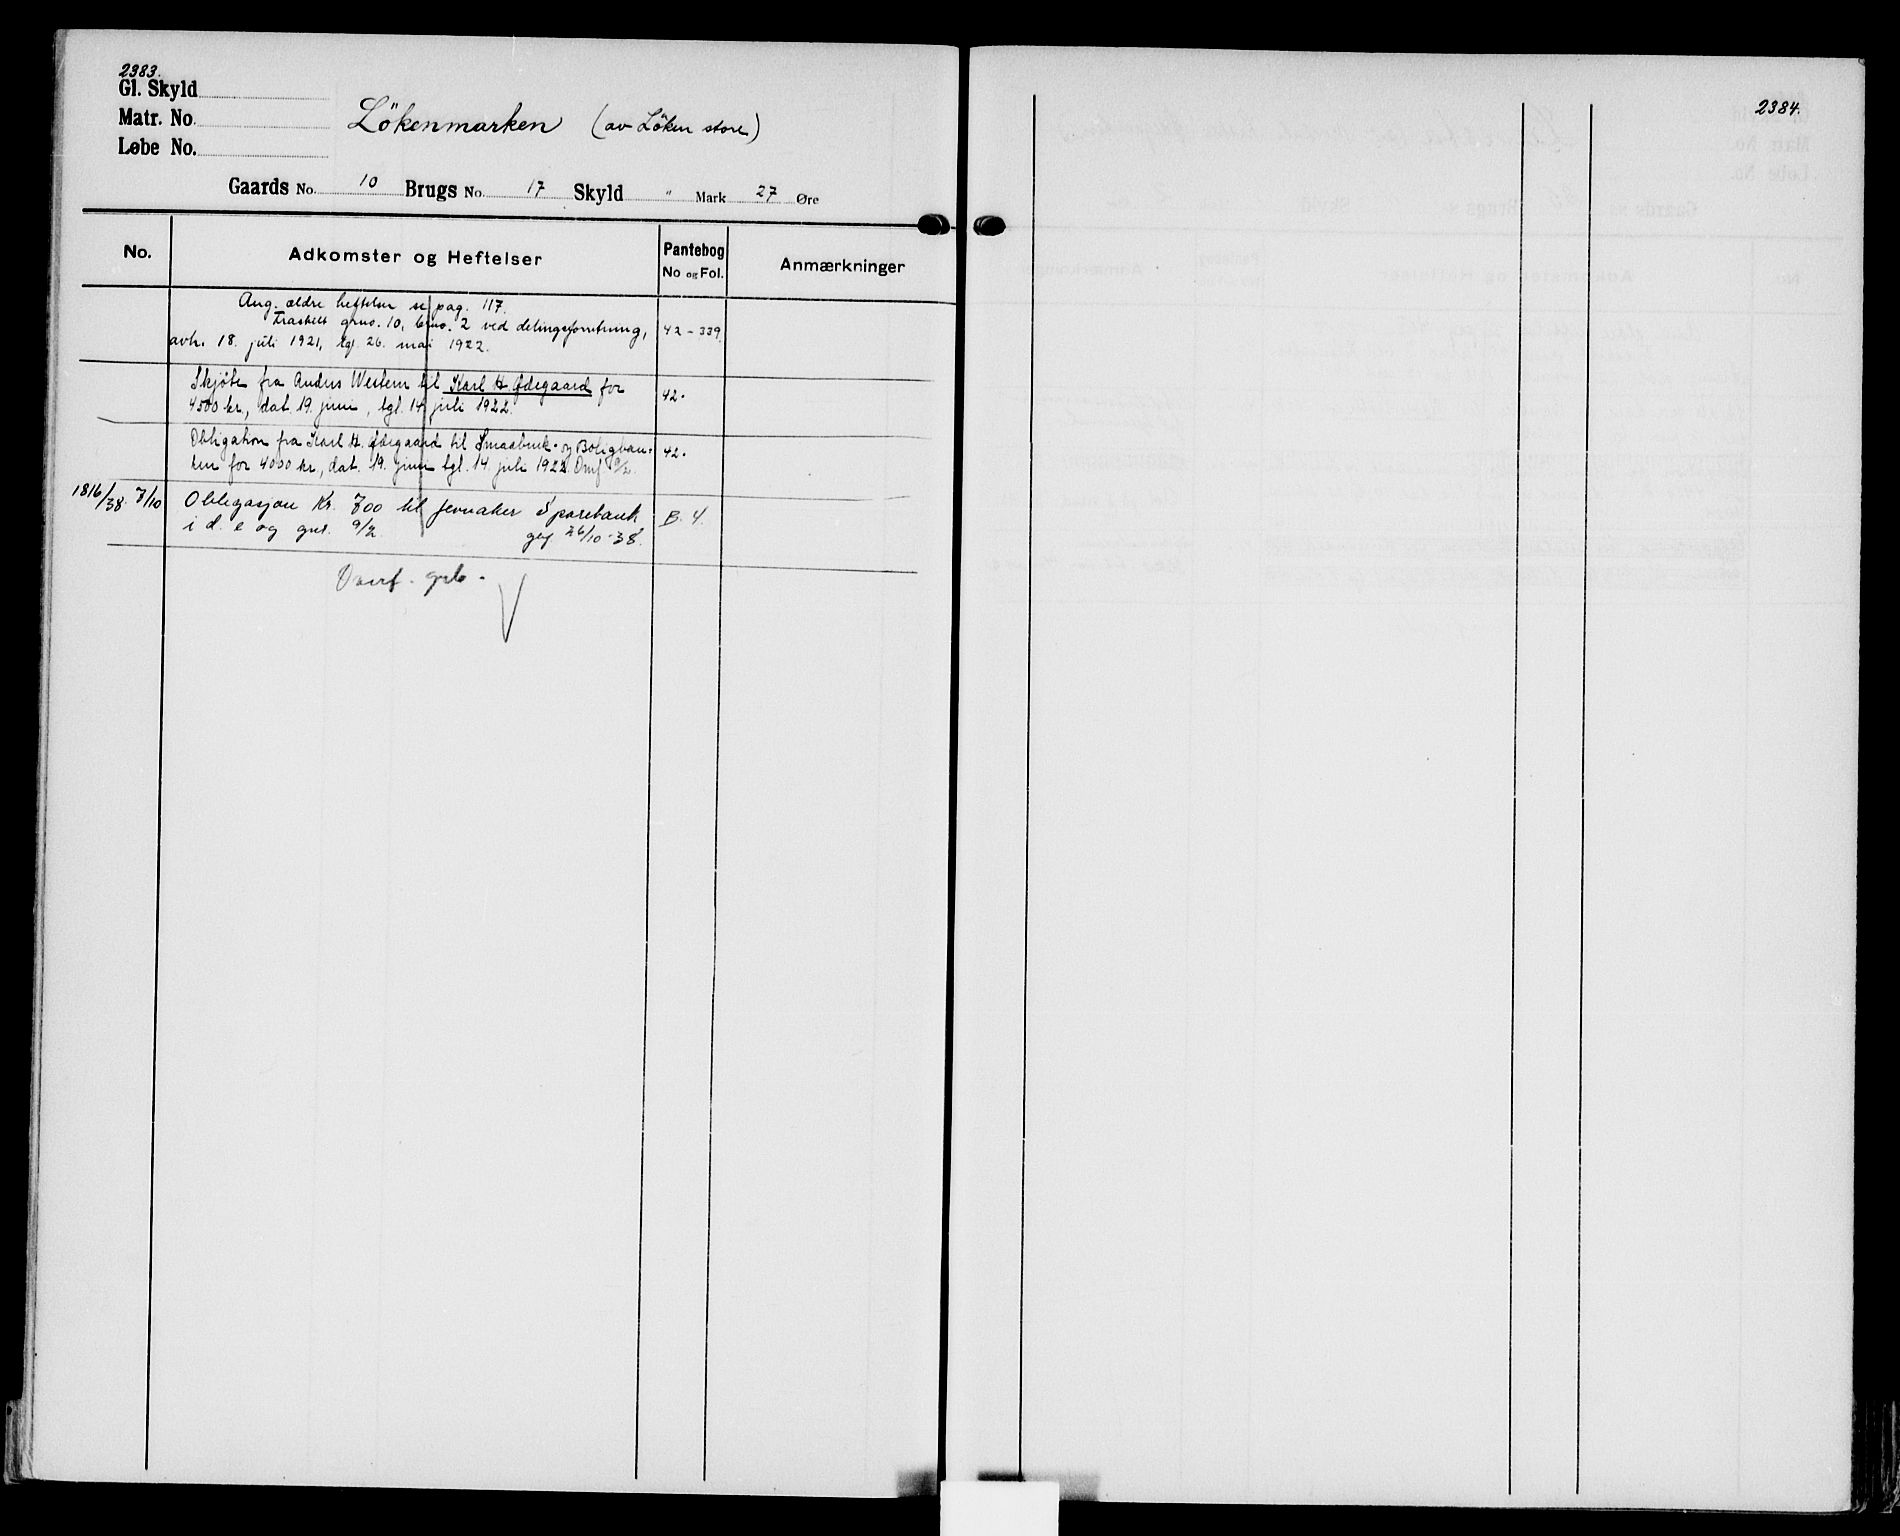 2383.
Gl. Skyld
Matr. No.
Løbe No.
Lökenmarken (av Löken store)
Gaards No. 10 Brugs No. 17 Skyld " Mark 27 Øre
No. Adkomster og Heftelser Pantebog No og Fol. Anmærkninger
Ang. ældre heftelser se pag. 117.
Fraskilt grno. 10, brno. 2 ved delingsforretning, 42 - 339.
avh. 18. juli 1921, tgl. 26. mai 1922.
Skjöte fra Anders Western til Karl H. Ødegaard for
4500 kr, dat. 19. juni, tgl. 14. juli 1922. 42.
Obligation fra Karl H. Ødegaard til Smaabruk- og Boligban-
ken for 4000 kr, dat. 19. juni tgl. 14. juli 1922. Omf. 9/2. 42.
1816/38 7/10 Obligasjon Kr. 700 til Jevnaker Sparebank
i d. e og gnr. 9/2 gej 26/10-38. B. 4.
Overf. grb.
2384.